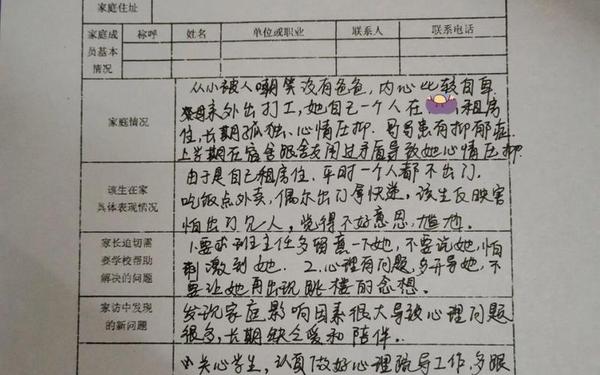 家庭住址
家庭成员基本情况 称呼 姓名 单位或职业 联系人 联系电话
家庭情况
从小被人嘲笑没有爸爸,内心比较自卑
母亲外出打工,她自己一个人在 租房
住,长期孤独、心情压抑.哥哥患有抑郁症.
上学期在宿舍跟舍友闹过矛盾导致她心情压抑.
该生在家具体表现情况
由于是自己租房住,平时一个人都不出门.
吃饭点外卖,偶尔出门拿快递,该生反映害
怕出门见人,觉得不好意思,尴尬.
家长迫切需要学校帮助解决的问题
1.要求班主任多留意一下她,不要说她,怕
刺激到她.2.心理有问题,多开导她,不
要让她再出现跳楼的念想.
家访中发现的新问题
发现家庭影响因素很大导致心理问题
很多,长期缺乏爱和陪伴.
关心学生,认真做好心理疏导工作,多跟